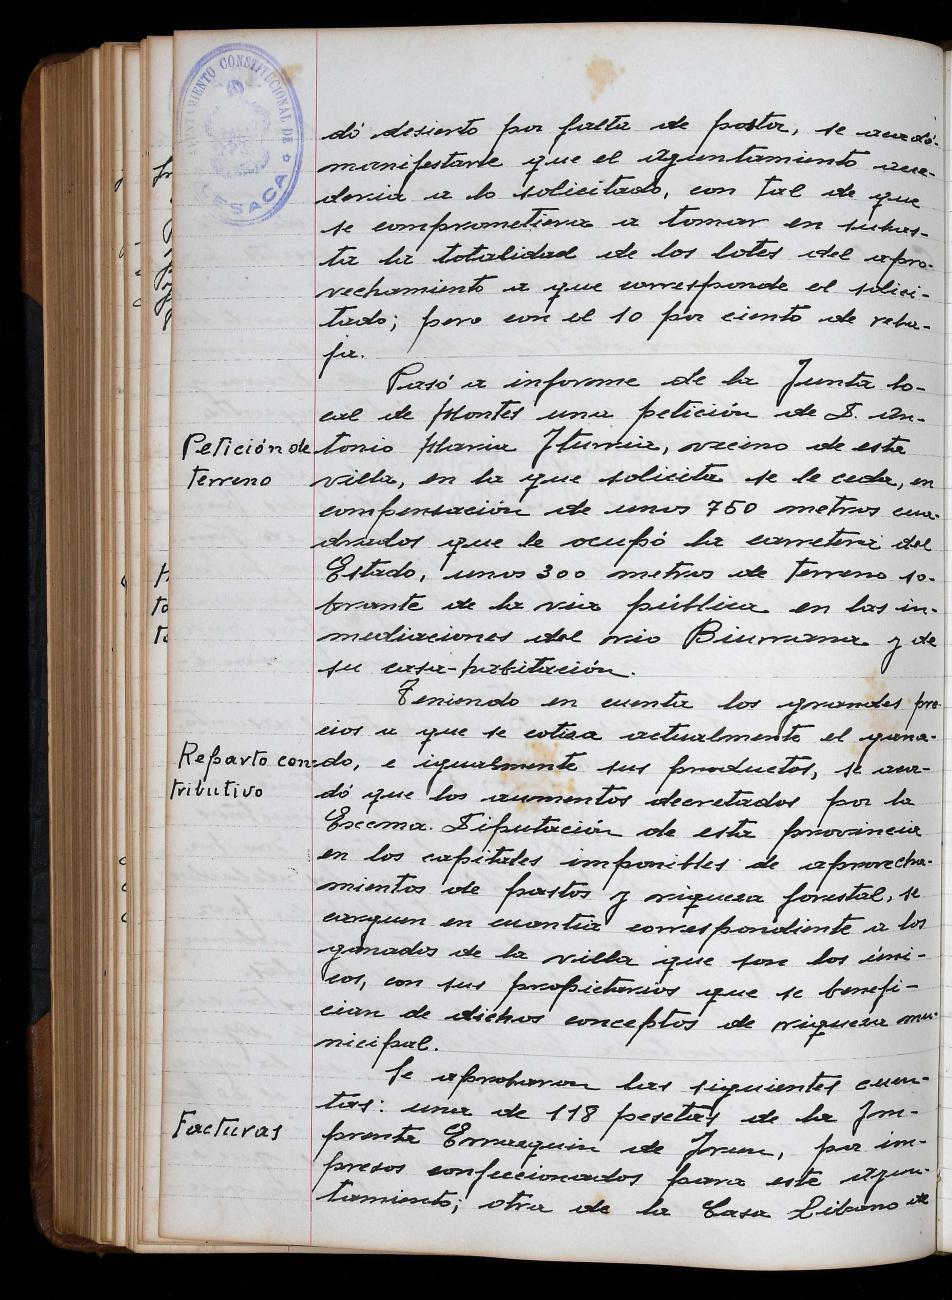 AYUNTAMIENTO CONSTITUCIONAL DE
LESACA
dó desierto por falta de postor, se acordó
manifestarle que el Ayuntamiento acce-
dería a lo solicitado, con tal de que
se comprometiera a tomar en subas-
ta la totalidad de los lotes del apro-
vechamiento a que corresponde el solici-
tado; pero con el 10 por ciento de reba-
ja.
Pasó a informe de la Junta lo-
cal de Montes una petición de D. An-
Petición de
terreno
tonio Maria Iturria, vecino de esta
villa, en la que solicita se le ceda, en
compensación de unos 750 metros cua-
drados que le ocupó la carretera del
Estado, unos 300 metros de terreno so-
brante de la via pública en las in-
mediaciones del rio Biurrana y de
su casa-habitación.
Teniendo en cuenta los grandes pre-
cios a que se cotiza actualmente el gana-
Reparto con-
tributivo
do, e igualmente sus productos, se acor-
dó que los aumentos decretados por la
Excma. Diputación de esta provincia
en los capitales imponibles de aprovecha-
mientos de pastos y riqueza forestal, se
carguen en cuantia correspondiente a los
ganados de la villa que son los úni-
cos, con sus propietarios que se benefi-
cian de dichos conceptos de riqueza mu-
nicipal.
Se aprobaron las siguientes cuen-
Facturas
tas: una de 118 pesetas de la Im-
prenta Enrasquin de Irun, por im-
presos confeccionados para este Ayun-
tamiento; otra de la Casa Líbano de